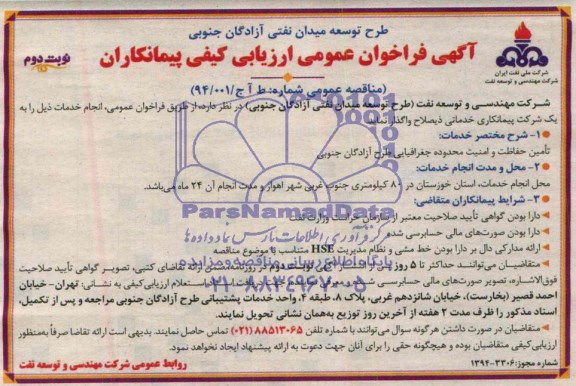 طرح توسعه میدان نفتی آزادگان جنوبی
آگهی فراخوان عمومی ارزیابی کیفی پیمانکاران
نوبت دوم
شرکت ملی نفت ایران
شرکت مهندسی و توسعه نفت
(مناقصه عمومی شماره: ط آ ج/۹۴/۰۰۱)
شرکت مهندسی و توسعه نفت (طرح توسعه میدان نفتی آزادگان جنوبی) در نظر دارد، از طریق فراخوان عمومی، انجام خدمات ذیل را به
یک شرکت پیمانکاری خدماتی ذیصلاح واگذار نماید.
۱- شرح مختصر خدمات:
تأمین حفاظت و امنیت محدوده جغرافیایی طرح آزادگان جنوبی
۲- محل و مدت انجام خدمات:
محل انجام خدمات، استان خوزستان در ۸۰ کیلومتری جنوب غربی شهر اهواز و مدت انجام آن ۲۴ ماه می‌باشد.
۳- شرایط پیمانکاران متقاضی:
دارا بودن گواهی تأیید صلاحیت معتبر از سازمان حراست وزارت نفت
دارا بودن صورت‌های مالی حسابرسی شده
ارائه مدارکی دال بر دارا بودن خط مشی و نظام مدیریت HSE متناسب با موضوع مناقصه
متقاضیان می‌توانند حداکثر تا ۵ روز پس از انتشار آگهی نوبت دوم در روزنامه، ضمن ارائه تقاضای کتبی، تصویر گواهی تأیید صلاحیت
فوق‌الاشاره، تصویر صورت های مالی حسابرسی استعلام ارزیابی‌کیفی به نشانی: تهران - خیابان
احمد قصیر (بخارست)، خیابان شانزدهم غربی، پلاک ۸، طبقه ۴، واحد خدمات پشتیبانی طرح آزادگان جنوبی مراجعه و پس از تکمیل،
اسناد مذکور را ظرف مدت ۲ هفته از آخرین روز توزیع به‌همان نشانی تحویل نمایند.
متقاضیان در صورت داشتن هرگونه سوال می‌توانند با شماره تلفن ۸۸۵۱۳۰۶۵ (۰۲۱) تماس حاصل نمایند. بدیهی است ارائه تقاضا صرفاً به‌منظور
ارزیابی کیفی متقاضیان بوده و هیچگونه حقی را برای آنان جهت دعوت به ارائه پیشنهاد ایجاد نخواهد نمود.
شماره مجوز: ۱۳۹۴-۳۳۰۶
روابط عمومی شرکت مهندسی و توسعه نفت
ParsNamadData
گردآوری اطلاعات پارس نماد داده ها
پایگاه اطلاع رسانی مناقصه و مزایده
۰۲۱-۸۸۳۴۹۶۷۰-۵